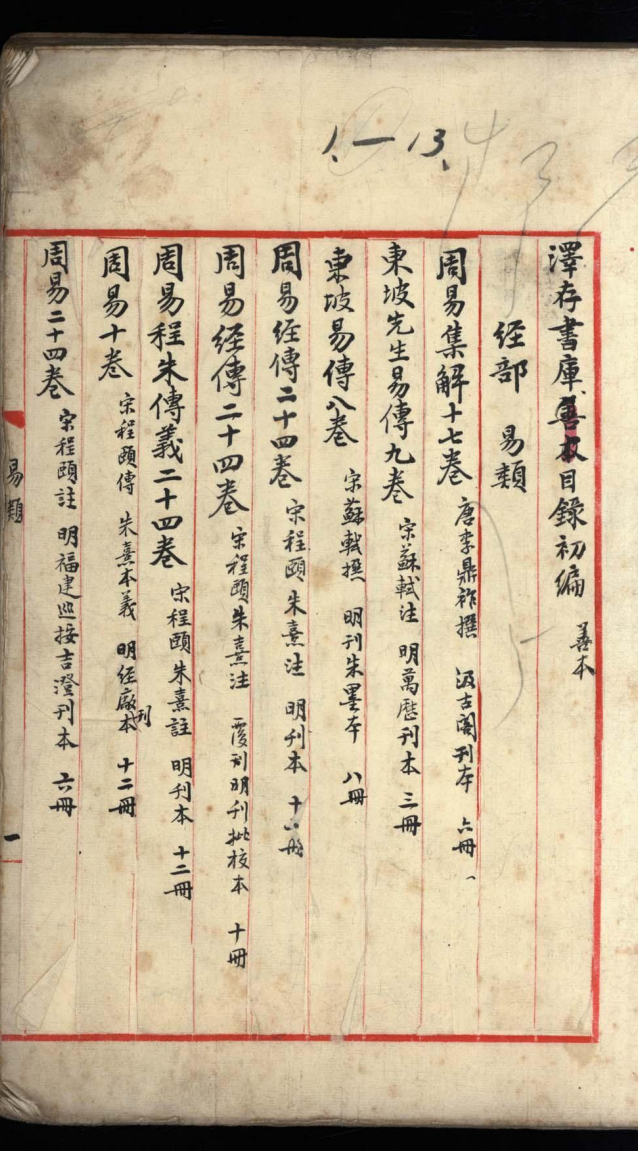 1.—13.
澤存書庫善本目錄初編 善本
经部 易類
周易集解十七卷 唐李鼎祚撰 汲古閣刊本 六冊
東坡先生易傳九卷 宋蘇軾注 明萬歷刊本 三冊
東坡易傳八卷 宋蘇軾撰 明刊朱墨本 八冊
周易经傳二十四卷 宋程頤朱熹注 明刋本 十六冊
周易经傳二十四卷 宋程頤朱熹注 覆刋明刊批校本 十冊
周易程朱傳義二十四卷 宋程頤朱熹註 明刋本 十二冊
周易十卷 宋程頤傳 朱熹本義 明经廠刋本 十二冊
周易二十四卷 宋程頤註 明福建巡按吉澄刊本 六冊
易類
一